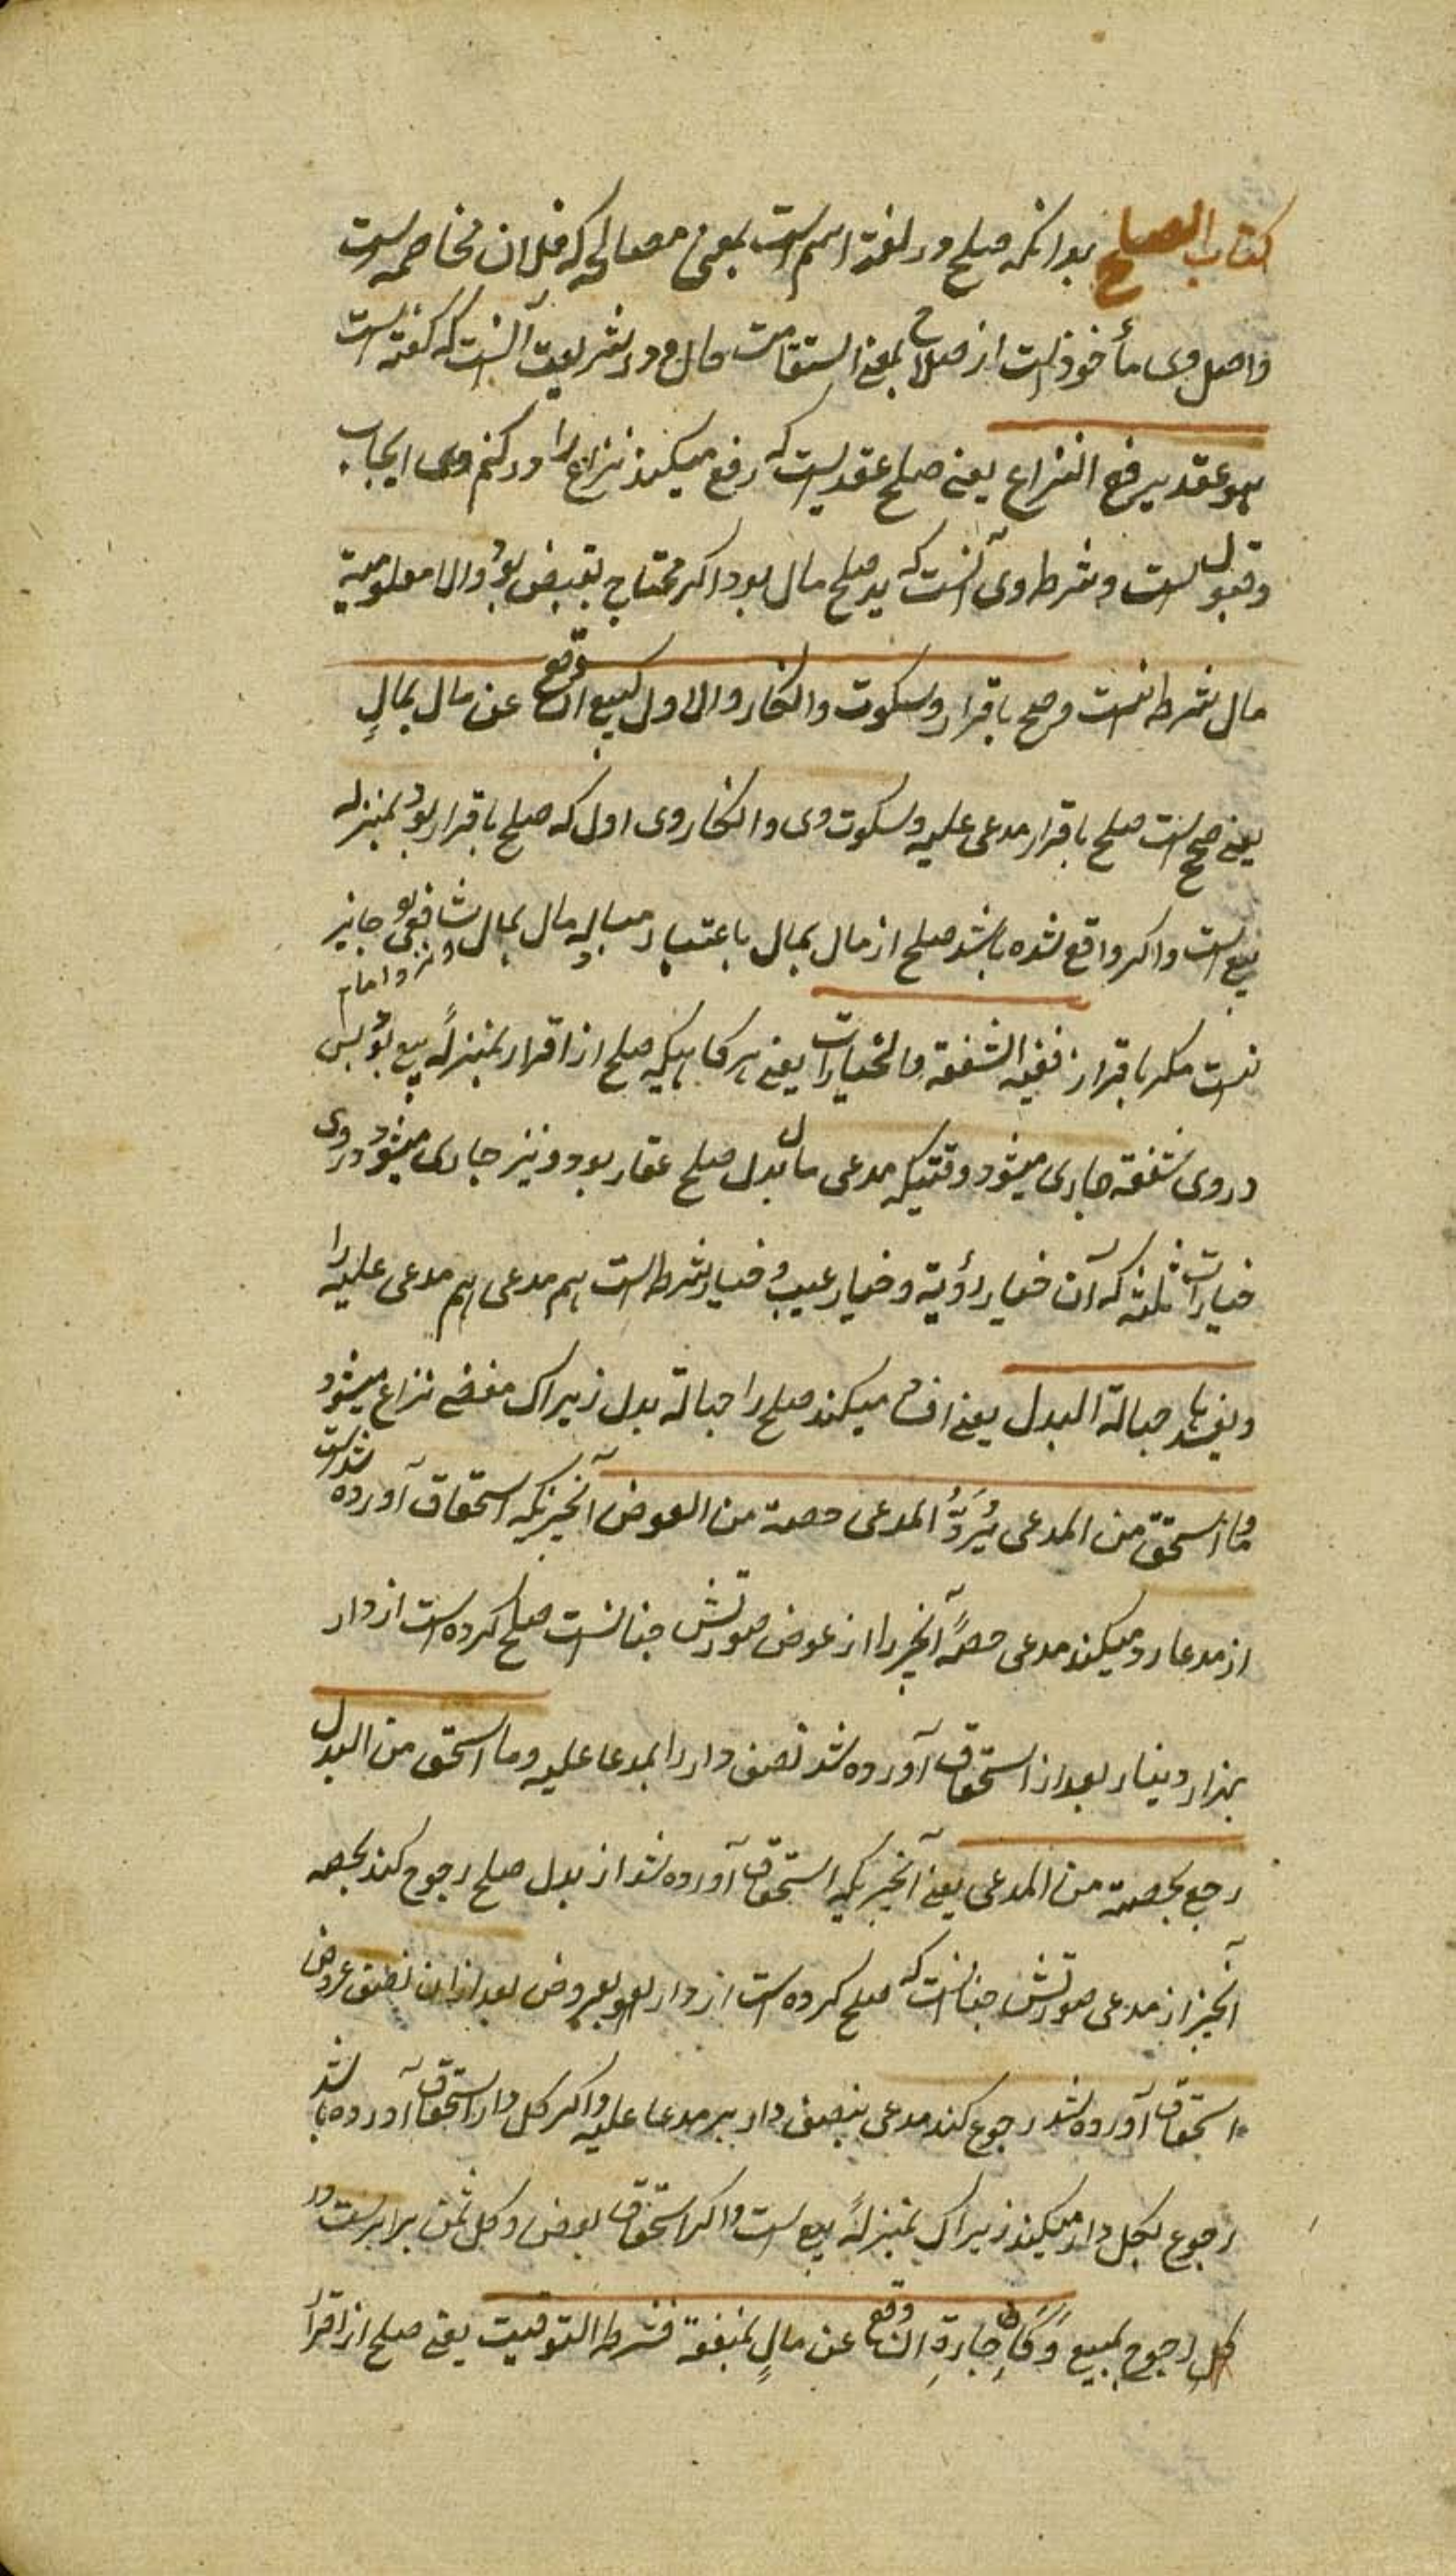 کتاب الصلح بدانکه صلح در لغة اسم است بمعنی مصالحه که خلاف مخاصمه است
و اصل وی مأخوذ است از صلاح بمعنی استقامت حال و در شریعت آنست که گفته است
هو عقد یرفع النزاع یعنی صلح عقدیست که رفع میکند نزاع را و رکن وی ایجاب
و قبول است و شرط وی آنست که بدل صلح مال بود اکر محتاج بقبض بود و الا معلومیة
مال شرط نیست و صح باقرار و سکوت و انکار و الاول کبیع ان وقع عن مال بمالٍ
یعنی صحیح است صلح باقرار مدعی علیه و سکوت وی و انکار وی اول که صلح باقرار بود بمنزله
بیع است و اکر واقع شده باشد صلح از مال بمال باعتبار مبادله مال بمال و نزد امام شافعی جایز
نیست مکر باقرار ففیه الشفعة والخیارات یعنی هرکاهیکه صلح از اقرار بمنزلهٔ بیع بود پس
در وی شفعه جاری میشود وقتیکه مدعی مال بدل صلح عقار بود و نیز جاری میشود در وی
خیارات ثلثه که آن خیار رؤیة و خیار عیب و خیار شرط است هم مدعی هم مدعی علیه را
و یفسدها جهالة البدل یعنی افساد میکند صلح را جهالة بدل زیراک مفضی نزاع میشود
و ما استحق من المدعی یُرَدُّ المدعی حصته من العوض آنچیزیکه استحقاق آورده شدست
از مدعا رد میکند مدعی حصهٔ آنچیز را از عوض صورتش چنانست صلح کرده است از دار
بهزار دینار بعد از استحقاق آورده شد نصف دار را بمدعا علیه و ما استحق من البدل
رجع بحصته من المدعی یعنی آنچیزیکه استحقاق آورده شد از بدل صلح رجوع کند بحصه
آنچیز از مدعی صورتش چنانست که صلح کرده است از دار بعروض بعد از ان نصف عروض
استحقاق آورده شد رجوع کند مدعی بنصف دار بر مدعا علیه و اکر کل دار استحقاق آورده باشد
رجوع بکل دار میکند زیراک بمنزلهٔ بیع است و اکر استحقاق بعض و کل ثمن برابرست در
کل رجوع بمبیع وَکَاِجارةِ ان وقع عن مالٍ بمنفعة فشرط التوقیت یعنی صلح از اقرار